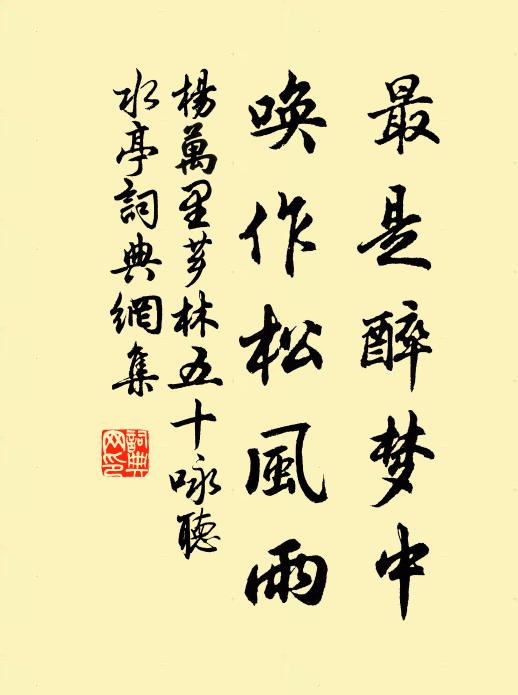 最是醉梦中
喚作松風雨
楊萬里芗林五十咏聽
水亭詞典網集
詞典网印